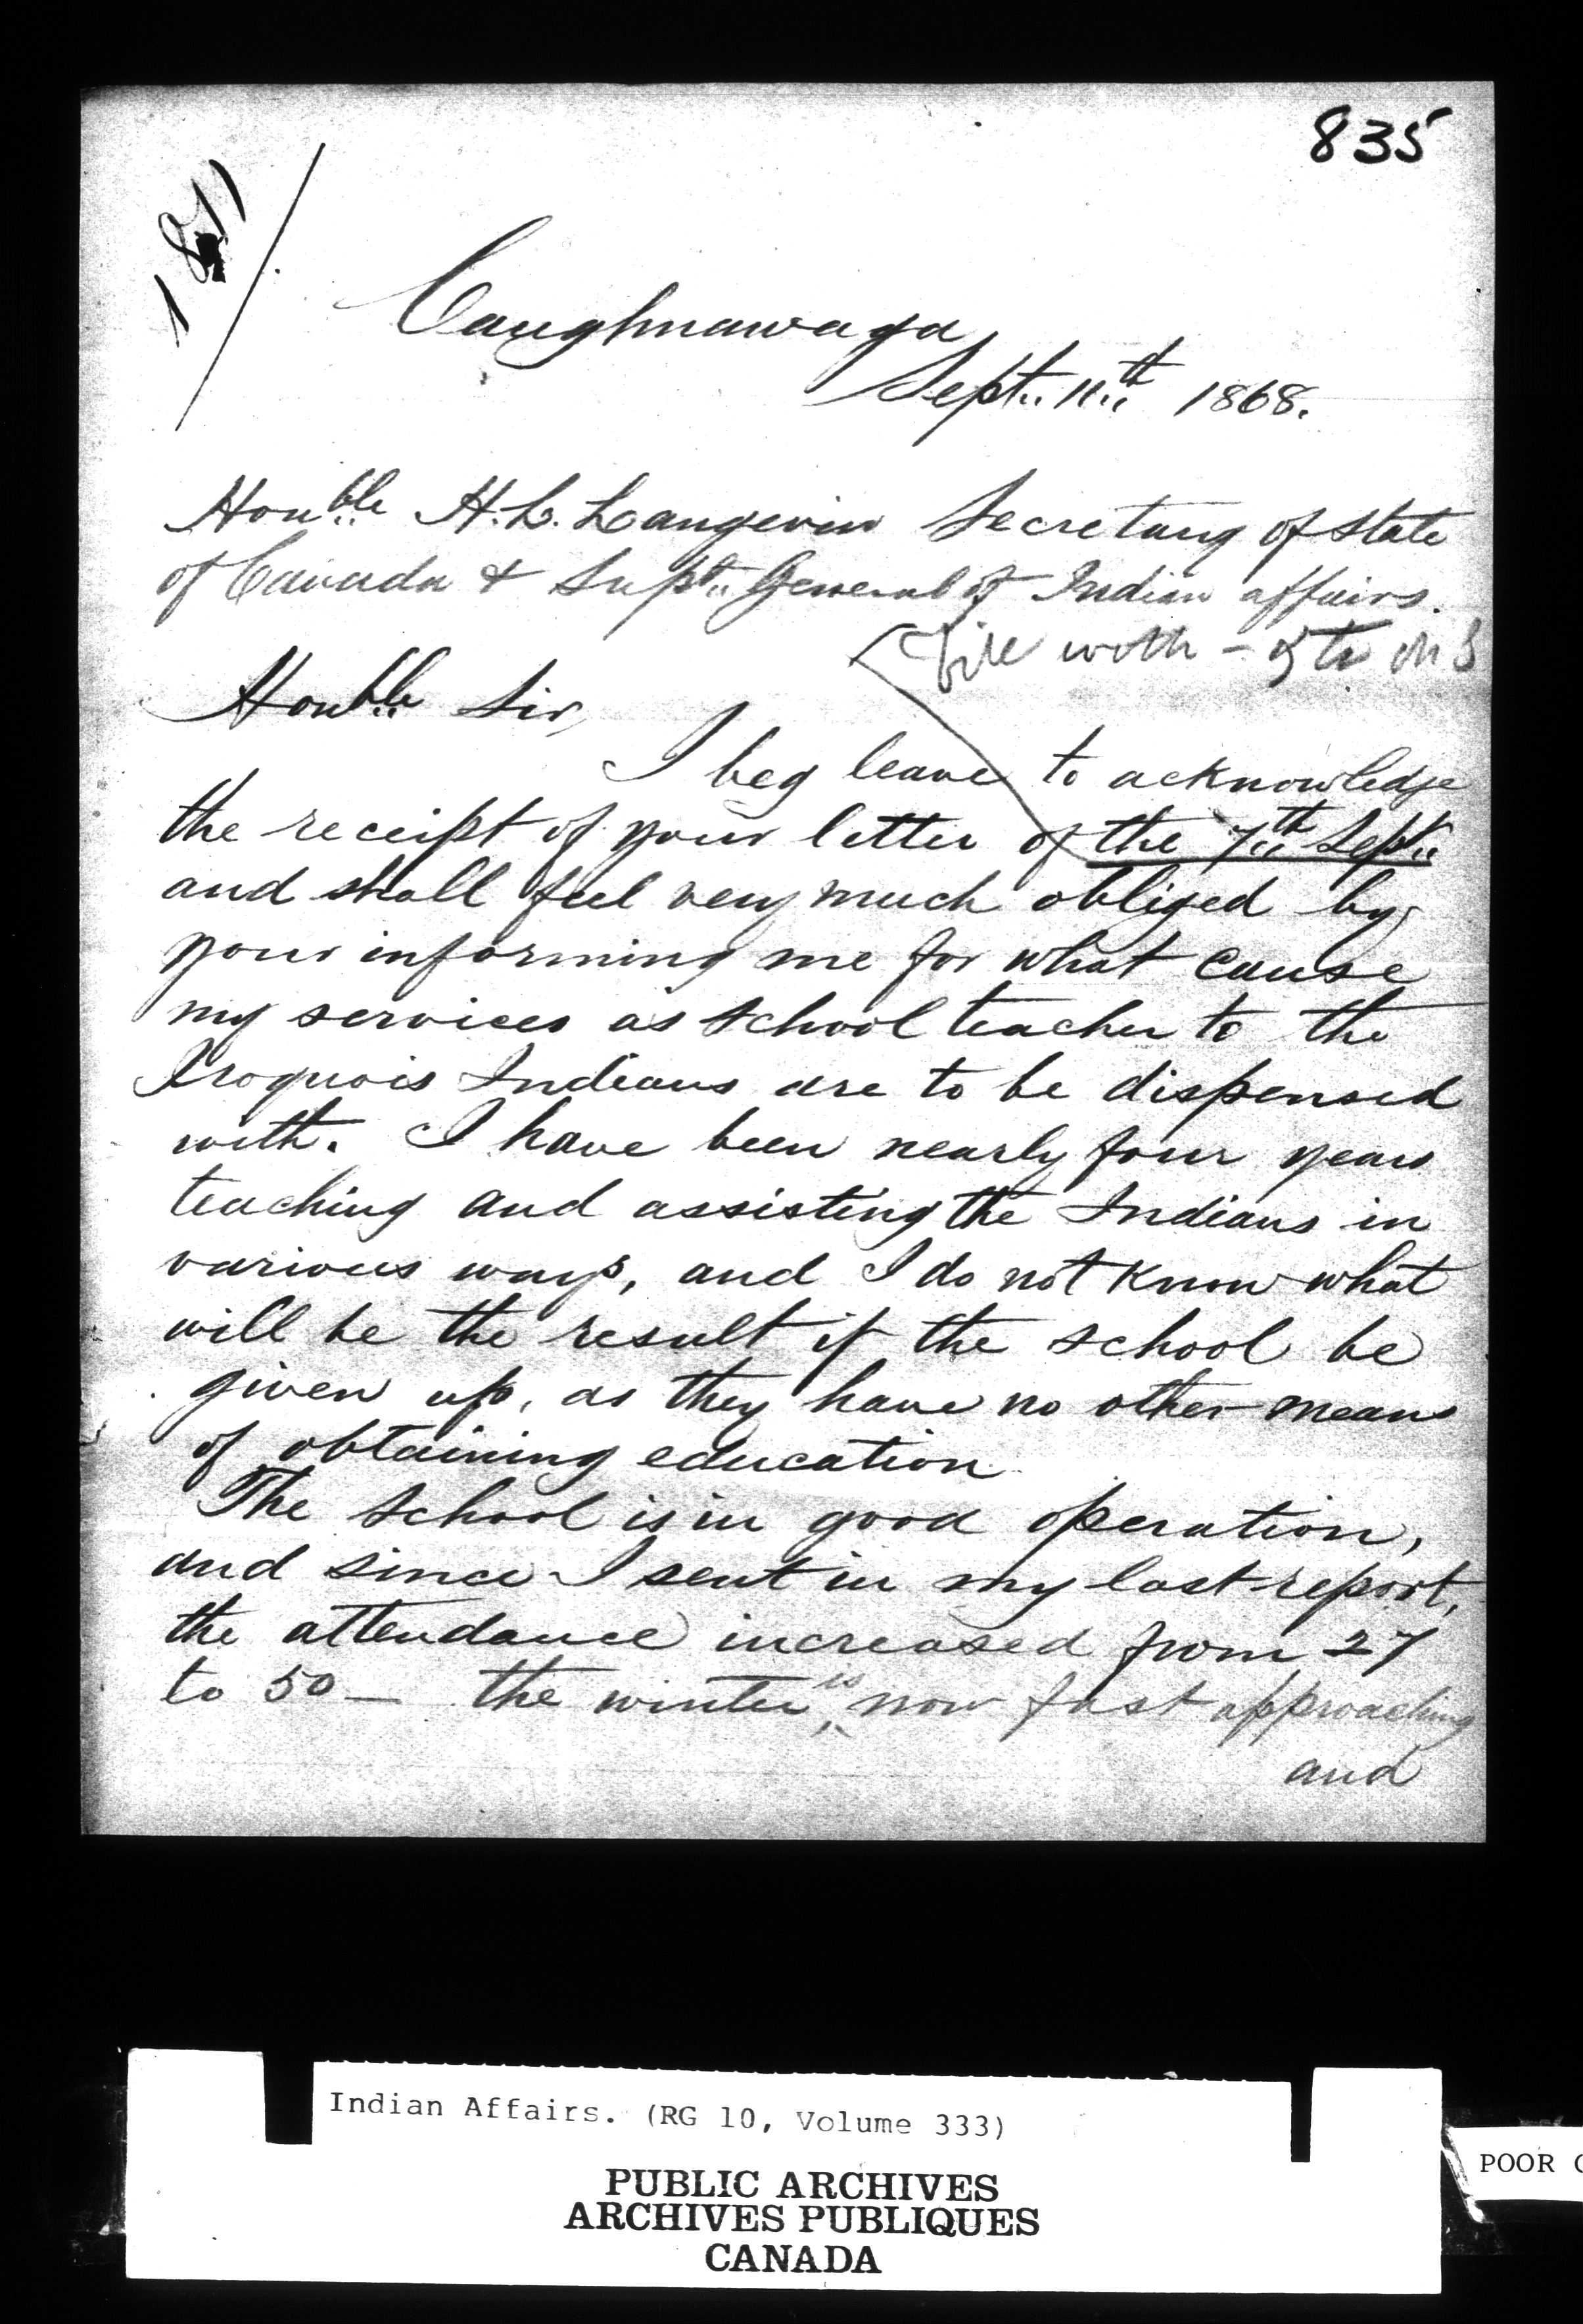 835
Caughnawaga
Sept. 11th 1868.
Honble H. L. Langevin Secretary of State
of Canada & Supt. General of Indian affairs.
File with -
Honble Sir,
I beg leave to acknowledge
the receipt of your letter of the 7th Sept.
and shall feel very much obliged by
your informing me for what cause
my services as school teacher to the
Iroquois Indians are to be dispensed
with. I have been nearly four years
teaching and assisting the Indians in
various ways, and I do not know what
will be the result if the school be
given up, as they have no other means
of obtaining education
The school is in good operation,
and since I sent in my last report,
the attendance increased from 27
to 50 - the winter is now fast approaching
and
Indian Affairs. (RG 10, Volume 333)
PUBLIC ARCHIVES
ARCHIVES PUBLIQUES
CANADA
POOR